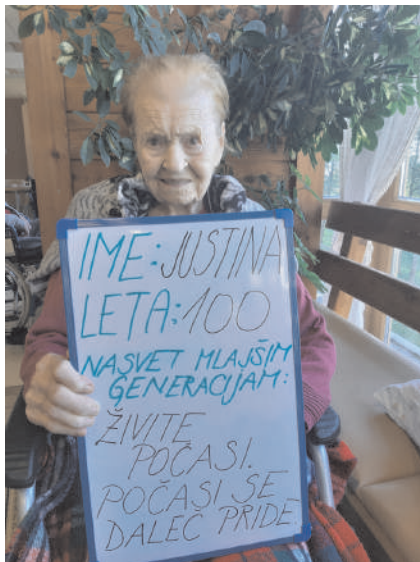 IME: JUSTINA
LETA: 100
NASVET MLAJŠIM
GENERACIJAM:
ŽIVITE
POČASI.
POČASI SE
DALEČ PRIDE